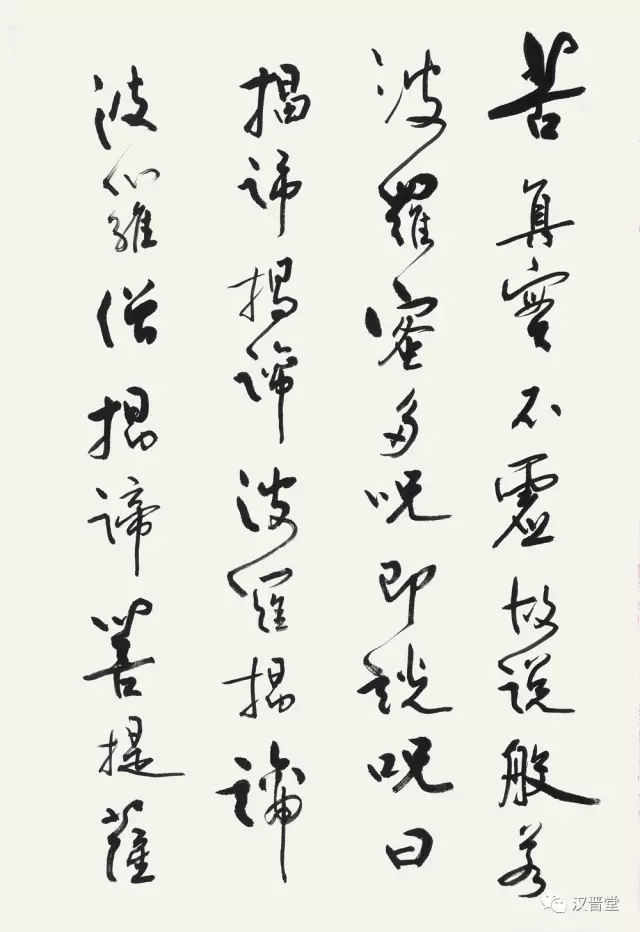 苦真實不虛故说般若
波羅蜜多呪即説呪曰
揭諦揭諦波罗揭諦
波羅僧揭諦菩提薩
汉晋堂